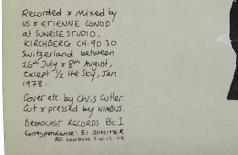 Recorded & Mixed by
us & ETIENNE CONOD
at SUNRISE STUDIO,
KIRCHBERG CH-90 30
Switzerland between
26th July & 8th August,
except ½ the Sky, Jan
1978.
Cover etc. by Chris Cutler.
Cut & pressed by NIMBUS.
BROADCAST RECORDS Bc 1
Correspondence: 51 ROSITER
RD. LONDON S.W.12. UK